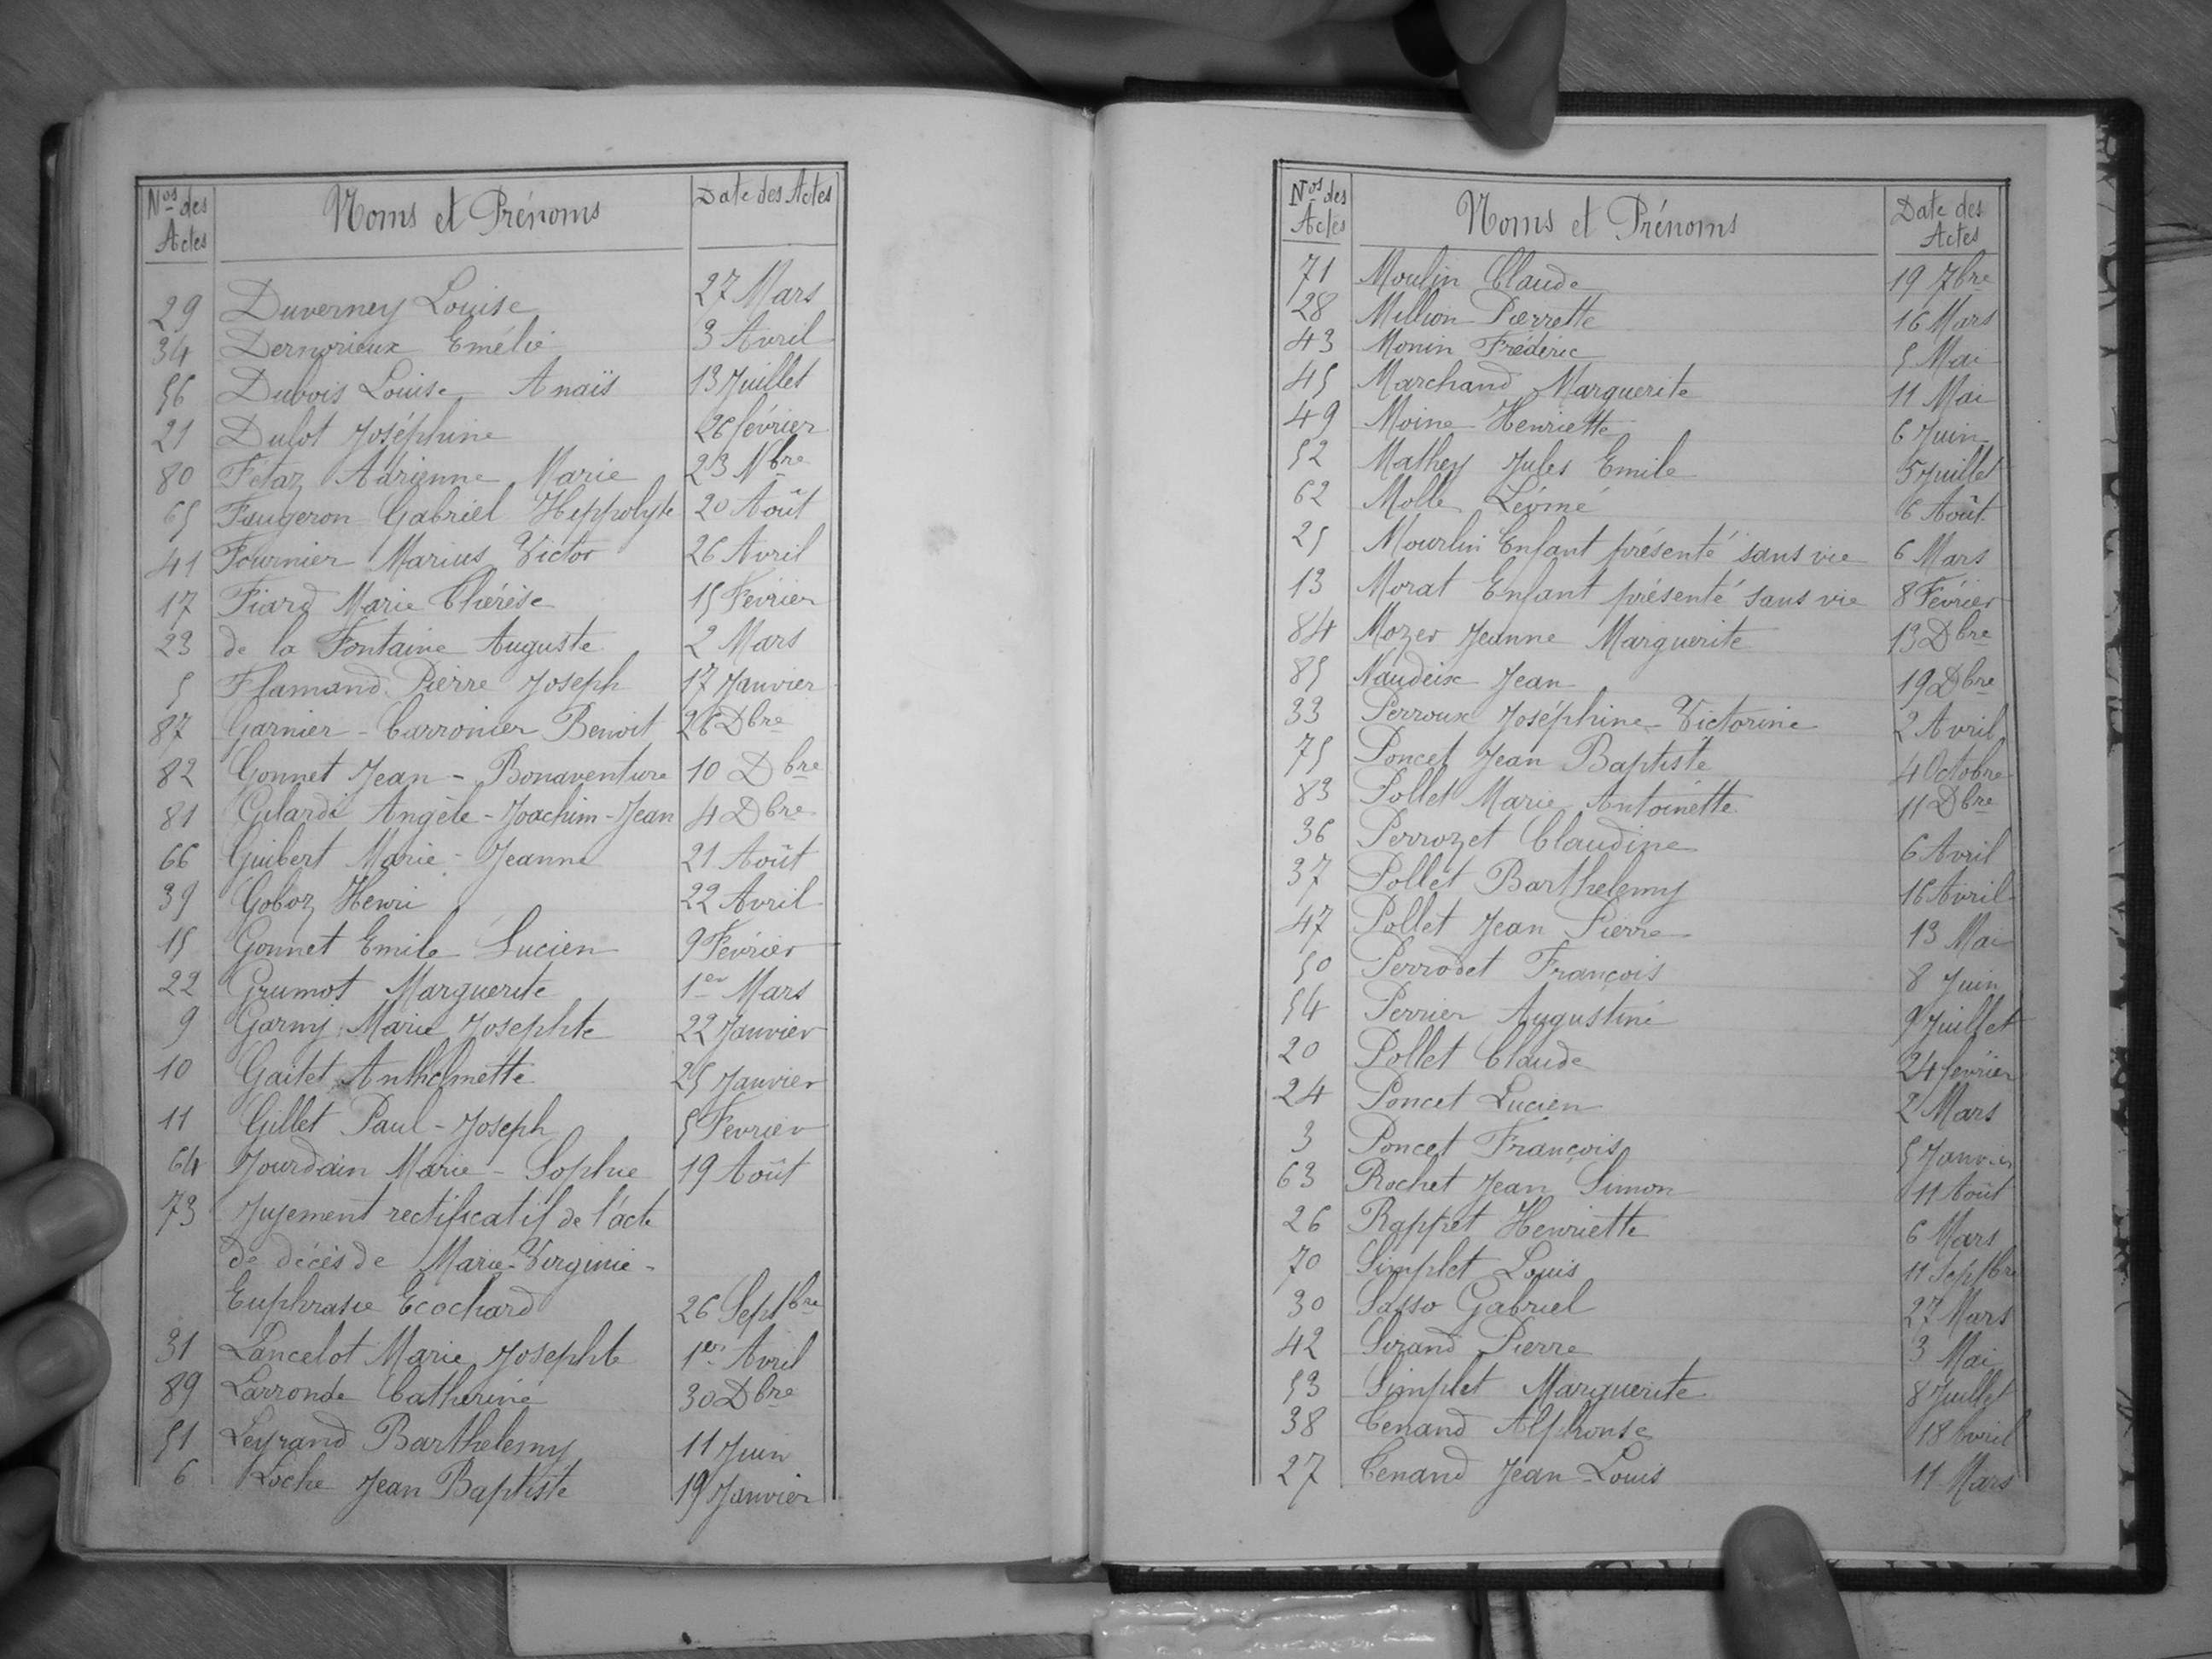 Nos des Actes Noms et Prénoms Date des Actes
29 Duverney Louise 27 Mars
34 Dernorieux Emélie 3 Avril
56 Dubois Louise Anaïs 13 Juillet
21 Dulot Joséphine 26 février
80 Fetaz Adrienne Marie 23 Nbre
65 Faugeron Gabriel Heppolyte 20 Août
41 Fournier Marius Victor 26 Avril
17 Fiard Marie Thérèse 15 Février
23 de la Fontaine Auguste 2 Mars
5 Flamand Pierre Joseph 17 Janvier
87 Garnier - Carronier Benoit 26 Dbre
82 Gonnet Jean - Bonaventure 10 Dbre
81 Gilardi Angèle - Joachim - Jean 4 Dbre
66 Guibert Marie - Jeanne 21 Août
39 Goboz Henri 22 Avril
15 Gonnet Emile Lucien 9 Février
22 Grumot Marguerite 1er Mars
9 Garny Marie Josephte 22 Janvier
10 Gaitet Anthelmette 25 Janvier
11 Gillet Paul - Joseph 5 Fevrier
64 Jourdain Marie - Sophie 19 Août
73 Jugement rectificatif de l'acte
de décès de Marie-Virginie -
Euphrasie Ecochard 26 Septbre
31 Lancelot Marie Josephte 1er Avril
89 Larronde Catherine 30 Dbre
51 Leyrand Barthelemy 11 Juin
6 Loche Jean Baptiste 19 Janvier
Nos des Actes Noms et Prénoms Date des Actes
71 Moulin Claude 19 7bre
28 Million Pierrette 16 Mars
43 Monin Frédéric 5 Mai
45 Marchand Marguerite 11 Mai
49 Moine Henriette 6 Juin
52 Mathey Jules Emile 5 Juillet
62 Molle Léonie 6 Août
25 Mourlin Enfant présenté sans vie 6 Mars
13 Morat Enfant présenté sans vie 8 Février
84 Mozer Jeanne Marguerite 13 Dbre
85 Naudeix Jean 19 Dbre
33 Perroux Joséphine - Victorine 2 Avril
75 Poncet Jean Baptiste 4 Octobre
83 Pollet Marie Antoinette 11 Dbre
36 Perrozet Claudine 6 Avril
37 Pollet Barthelemy 16 Avril
47 Pollet Jean Pierre 13 Mai
50 Perrodet François 8 Juin
54 Perrier Augustine 9 Juillet
20 Pollet Claude 24 février
24 Poncet Lucien 2 Mars
3 Poncet François 5 Janvier
63 Rochet Jean Simon 11 Août
26 Rappet Henriette 6 Mars
70 Simplet Louis 11 Septbre
30 Sasso Gabriel 27 Mars
42 Sirand Pierre 3 Mai
53 Simplet Marguerite 8 Juillet
38 Tenand Alphonse 18 Avril
27 Tenand Jean Louis 11 Mars